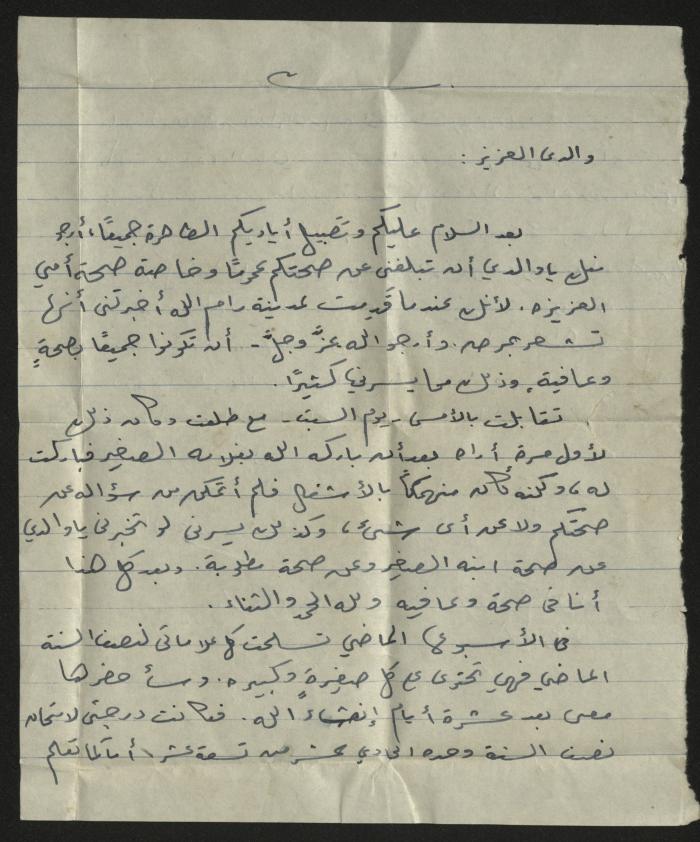 والدى العزيز :
بعد السلام عليكم وتقبيل أياديكم الطاهرة جميعًا، أرجو
منك ياوالدي أن تبلغنى عن صحتكم عمومًا وخاصة صحة أمي
العزيزه. لأنك عندما قدمت لمدينة رام الله أخبرتنى أنها
تشعر بمرض. وأرجو الله عزّ وجلّ - أن تكونوا جميعًا بصحةٍ
وعافية، وذلك مما يسرني كثيرًا.
تقابلت بالأمس - يوم السبت - مع طلعت وكان ذلك
لأول مرة أراه بعد أن باركه الله بغلامه الصغير فباركت
له، ولكنه كان منهمكًا بالأشغال فلم أتمكن من سؤاله عن
صحتكم ولا عن أى شىء، وكذلك يسرنى لو تخبرنى ياوالدي
عن صحة ابنه الصغير وعن صحة مطوبة. وبعد كل هذا
أنا فى صحة وعافيه ولله الحمد والثناء.
فى الأسبوع الماضي تسلمت كل علاماتى لنصف السنة
الماضي فهي تحتوى على كل صغيرةٍ وكبيره. وسأحضرها
معى بعد عشرة أيام إنشاء الله. فكانت درجتى لامتحان
نصف السنة وحده الحادي عشر من تسعة عشر، أما كما تعلم